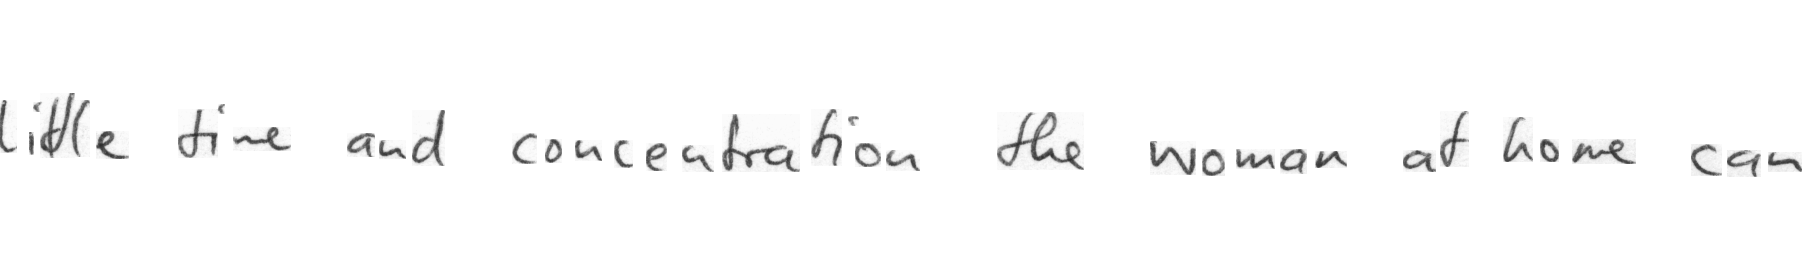 little time and concentration the woman at home can